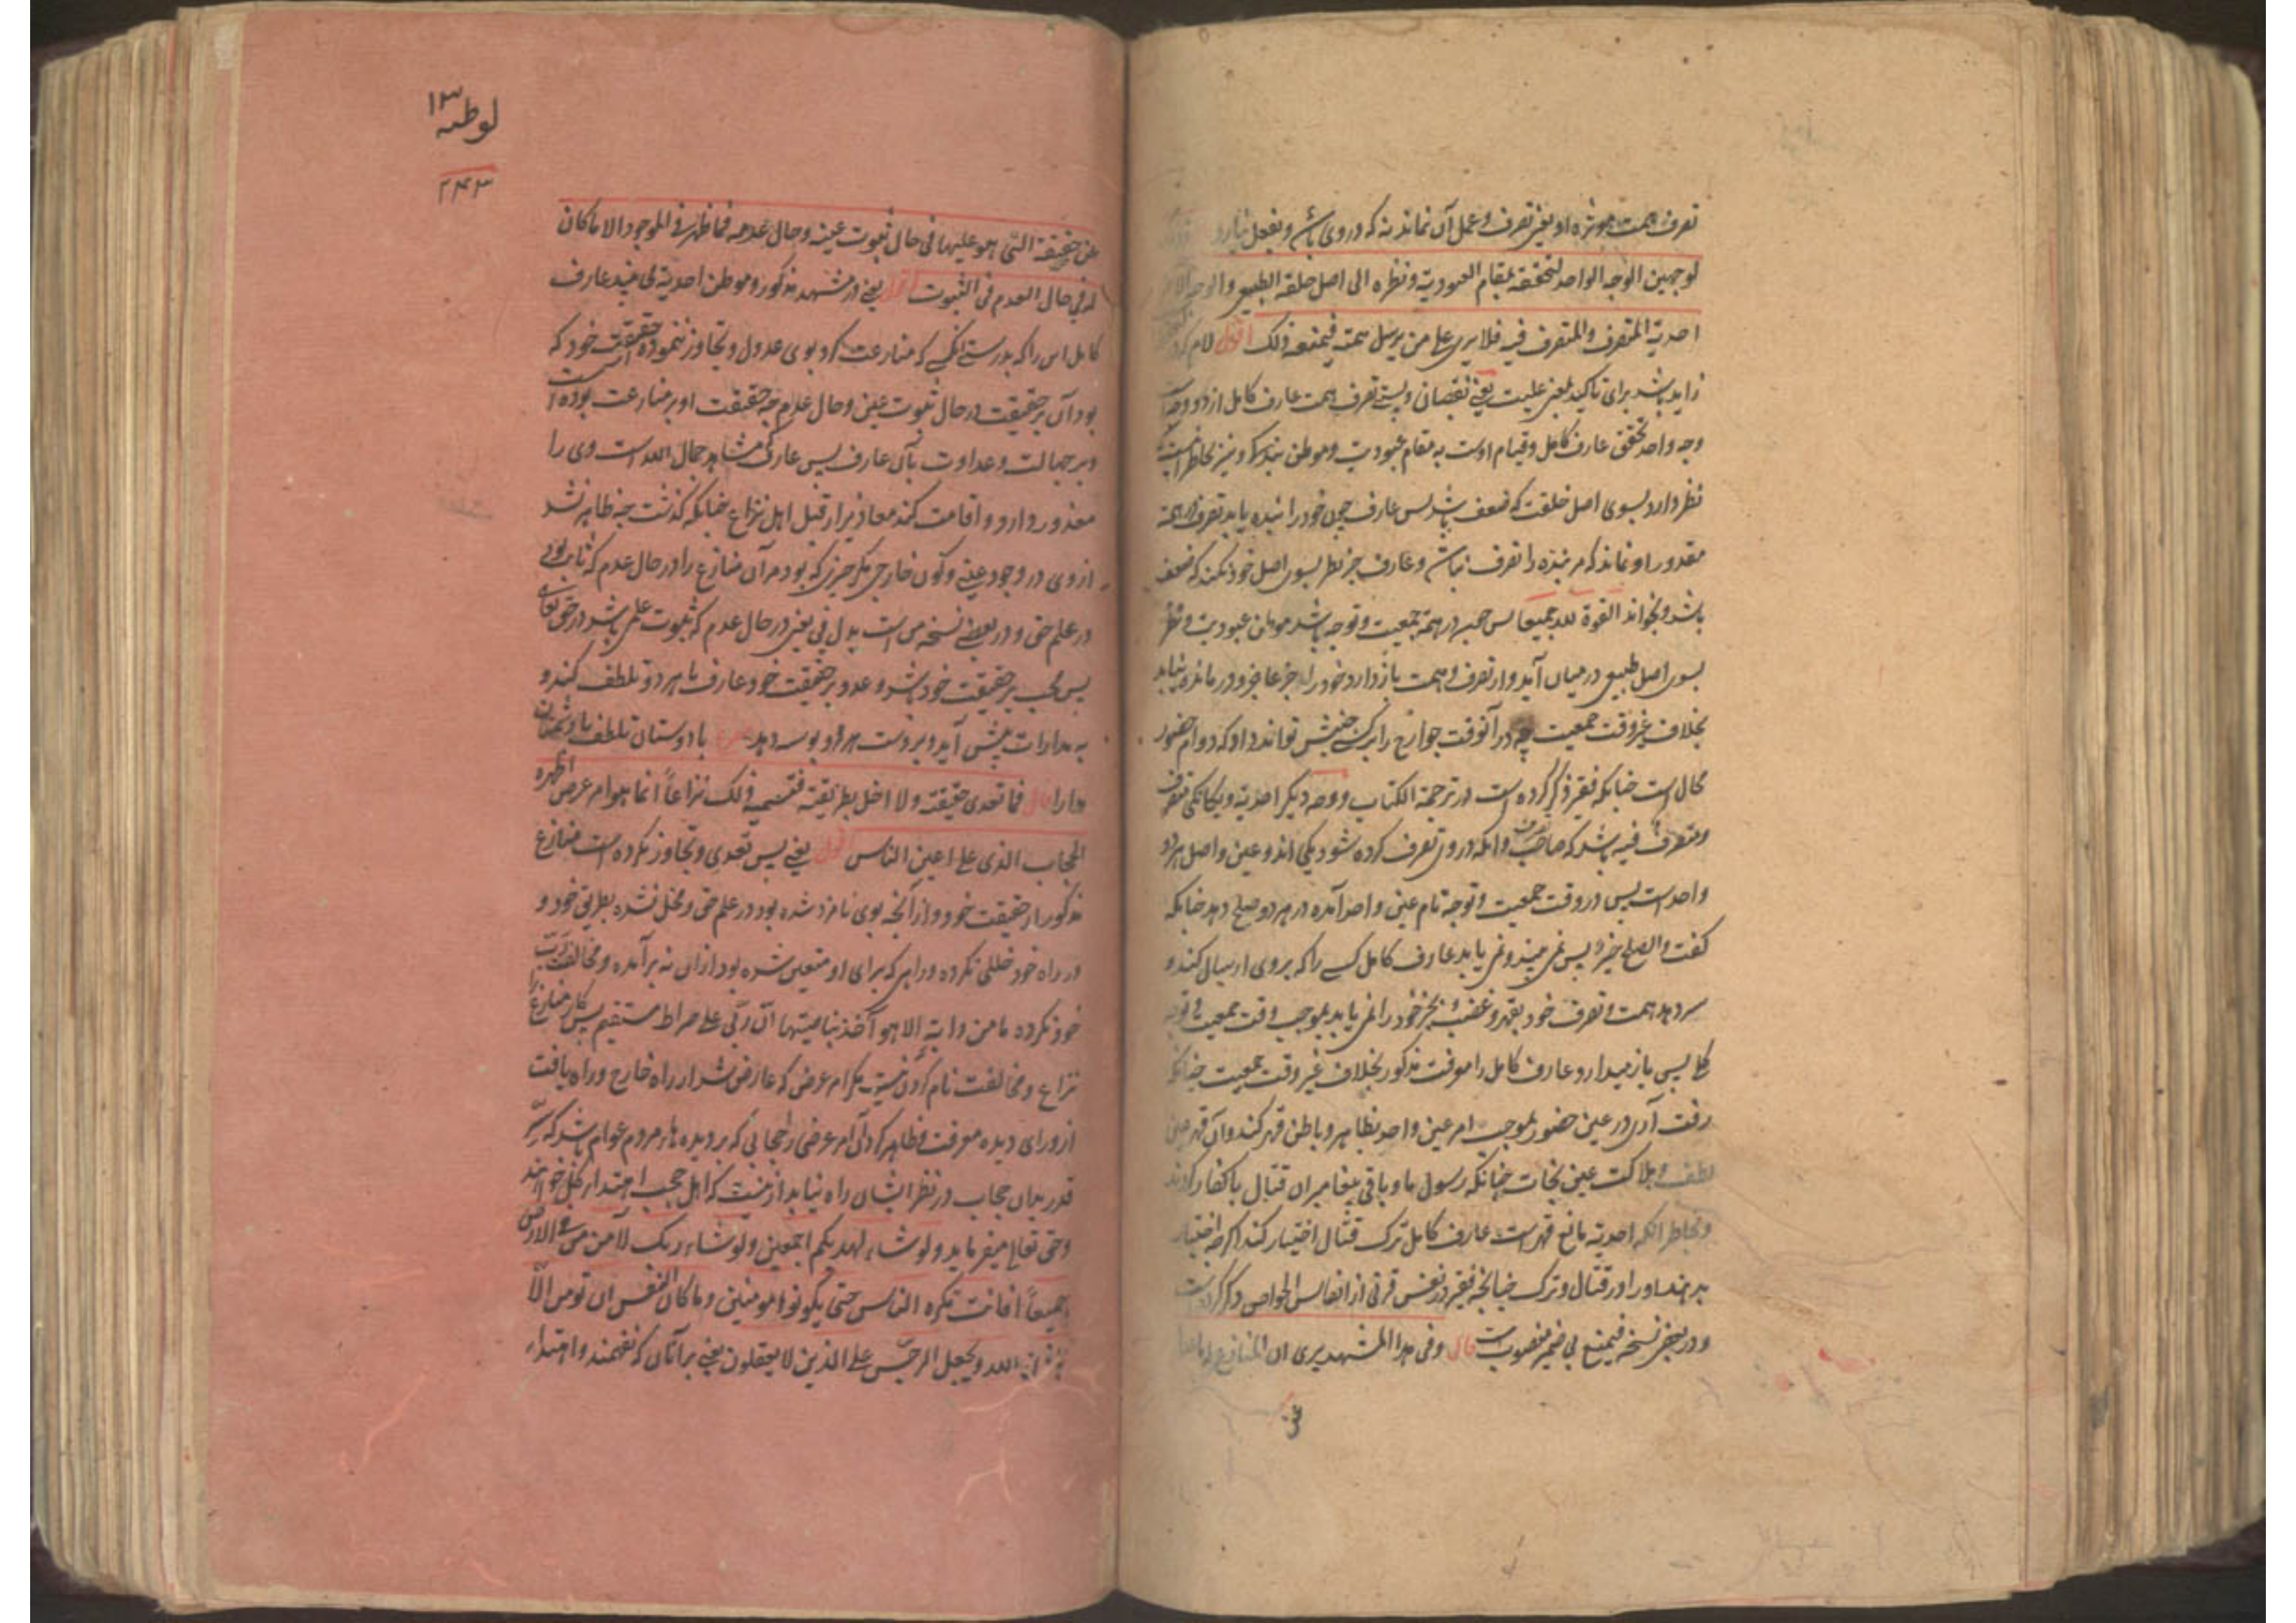 تصرف همت موثره او یعنی تصرف و عمل آن نماند نه که در وی باشد و بفعل نیارد
لوجهین الوجه الواحد لتحققه بمقام العبودیة و نظره الی اصل خلقه الطبیعی و الوجه الآخر
احدیة المتصرف و المتصرف فیه فلا یری علی من یرسل همته فیمنعه ذلک اقول لام که در
زاید باشد برای تاکید بمعنی علیت یعنی نقصان و پستی تصرف همت عارف کامل از دو وجه است
وجه واحد تحقق عارف کامل و قیام اوست به مقام عبودیت و موطن بندگی و نیز بخاطر
نظر دارد بسوی اصل خلقت که ضعف باشد پس عارف چون خود را بنده یابد تصرف از همه
مقدور او نماند که مر بنده را تصرف نباشد و عارف جز نظر بسوی اصل خود نکند که ضعف
باشد و بخواند القوة لله جمیعا پس در همه جمعیت و توجه باشد موطن عبودیت و نظر
بسوی اصل طبیعی در میان آید و از تصرف و همت باز دارد خود را جز عاجز و درمانده نیابد
بخلاف غیر وقت جمعیت چه در آنوقت جوارح را جنبش تواند داد که دوام حضور
محال است چنانکه فقیر ذکر کرده است در ترجمة الکتاب و وجه دیگر احدیة و یکانگی متصرف
و متصرف فیه باشد که صاحب تصرف و آنکه در وی تصرف کرده شود یکی اند و عین و اصل هر دو
واحد است پس در وقت جمعیت و توجه تام عین واحد آمده در هر دو صلح دهد چنانکه
گفت و الصلح خیر پس نمی بیند و نمی یابد عارف کامل کسی را که بر وی ارسال کند و
سر دهد همت و تصرف خود بقهر و غضب بجز خود را نمی یابد بموجب وقت جمعیت و توجه
باز میدارد عارف کامل را موقت مذکور بخلاف غیر وقت جمعیت چنانکه
رفت آری در عین حضور بموجب امر عین واحد بظاهر و باطن قهر کند و آن قهر عین
لطف و هلاکت عین نجات چنانکه رسول ما و باقی پیغامبران قتال با کفار کردند
و بخاطر آنکه احدیة مانع قهر است عارف کامل ترک قتال اختیار کند اگرچه اختیار
بدهند او را در قتال و ترک چنانچه فقیر در نفس قرنی از انفاس الخواص ذکر کرده است
و در بعضی نسخه فیمنع بی ضمیر منصوب است قال و فی هذا المشهد یری ان المنازع له ما عدل
عن
لوطیه ۱۳
۲۴۳
عن حقیقته التی هو علیها فی حال ثبوت عینه و حال عدمه فما ظهر فی الموجود الا ما کان
له فی حال العدم فی الثبوت اقول یعنی در مشهد مذکور و موطن احدیة می بیند عارف
کامل این را که بدرستی کسی که منازعت کرد بوی عدول و تجاوز ننموده است حقیقت خود که
بود آن بر حقیقت در حال ثبوت عینی و حال عدم چه حقیقت او بر منازعت بوده است
و بر جهالت و عداوت بآن عارف پس عارف که مشاهد جمال الله است وی را
معذور دارد و اقامت کند معاذیر از قبل اهل نزاع چنانکه گذشت چه ظاهر نشد
از وی در وجود عینی و کون خارجی مگر چیزی که بود مر آن منازع را در حال عدم که ثابت بود
در علم حق و در بعضی نسخه من است بدل فی یعنی در حال عدم که ثبوت علمی باشد در حق تعالی
پس محب بر حقیقت خود باشد و عدو بر حقیقت خود عارف با هر دو تلطف کند و
به مدارات پیش آید و بر دست هر دو بوسه دهد مصرع با دوستان تلطف با دشمنان
مدارا قال فما تعدی حقیقته و لا اخل بطریقته فتسمیة ذلک نزاعاً انما هو امر عرضی اظهره
الحجاب الذی علی اعین الناس اقول یعنی پس تعدی و تجاوز نکرده است منازع
مذکور از حقیقت خود و از آنچه بوی نامزد شده بود در علم حق و مخل نشده بطریق خود و
در راه خود خللی نکرده و راهی که برای او متعین شده بود از ان نه برآمده و مخالفت رب
خود نکرده ما من دابة الا هو آخذ بناصیتها ان ربی علی صراط مستقیم پس کار منازع را
نزاع و مخالفت نام کردن نیست مگر امر عرضی که عارض شد از راه خارج و راه یافت
از ورای دیده معرفت و ظاهر کرد آن امر عرضی را حجابی که بر دیده های مردم عوام باشد که سر
قدر بدان حجاب در نظر ایشان راه نیابد ازینست که اهل حجب اهتداء کل خواهند
و حق تعالی میفرماید و لو شاء لهدیکم اجمعین و لو شاء ربک لآمن من فی الارض
جمیعاً افانت تکره الناس حتی یکونوا مومنین و ما کان لنفس ان تومن الا
باذن الله و یجعل الرجس علی الذین لا یعقلون یعنی بر آنان که نفهمند و اهتداء